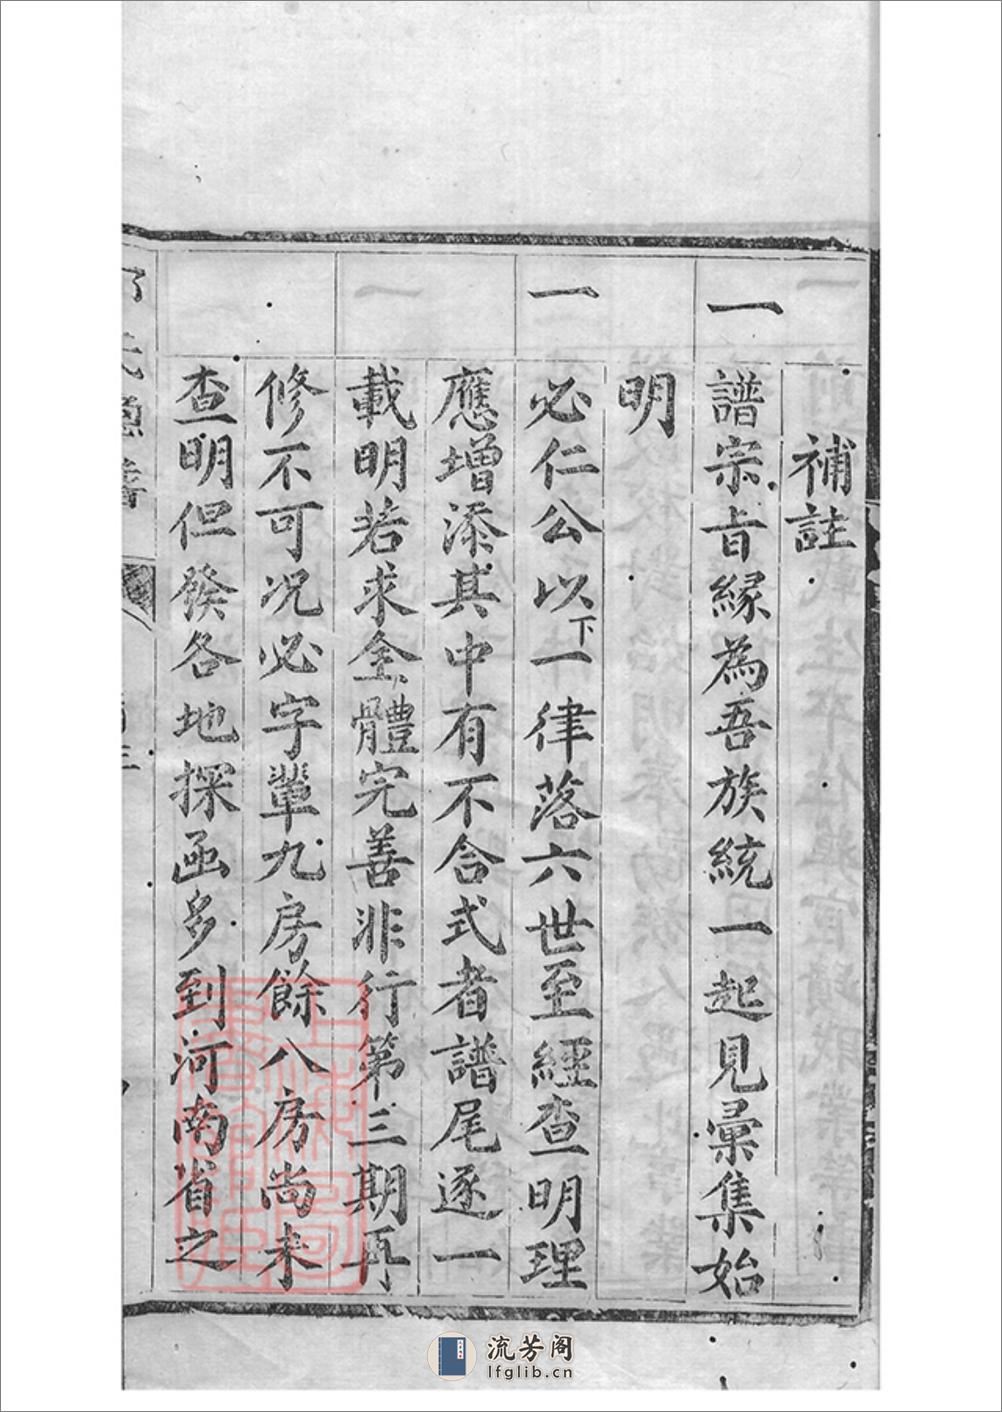 補註
一 譜宗旨緣為吾族統一起見彙集始
明
一 必仁公以下一律落六世至經查明理
應增添其中有不合式者譜尾逐一
載明若求全體完善非行第三期再
修不可况必字輩九房餘八房尚未
查明但發各地探函多到河南省之
流芳阁
lfglib.cn